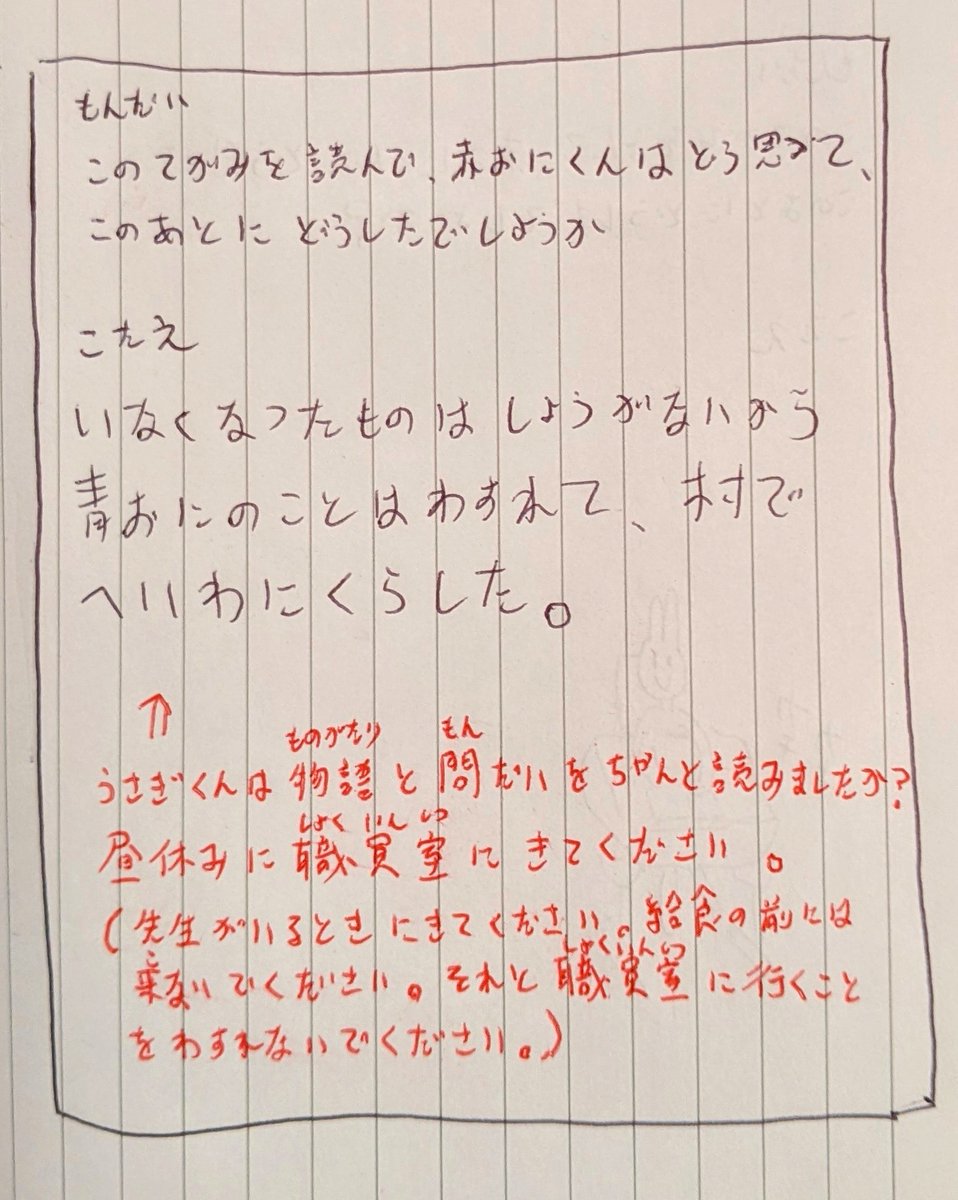 もんだい
このてがみを読んで、赤おにくんはどう思って、
このあとにどうしたでしょうか
こたえ
いなくなったものはしょうがないから
青おにのことはわすれて、村で
へいわにくらした。
↑
ものがたり もん
うさぎくんは物語と問だいをちゃんと読みましたか?
しょくいんしつ
昼休みに職員室にきてください。
(先生がいるときにきてください。給食の前には
こ しょくいんしつ
来ないでください。それと職員室に行くこと
をわすれないでください。)